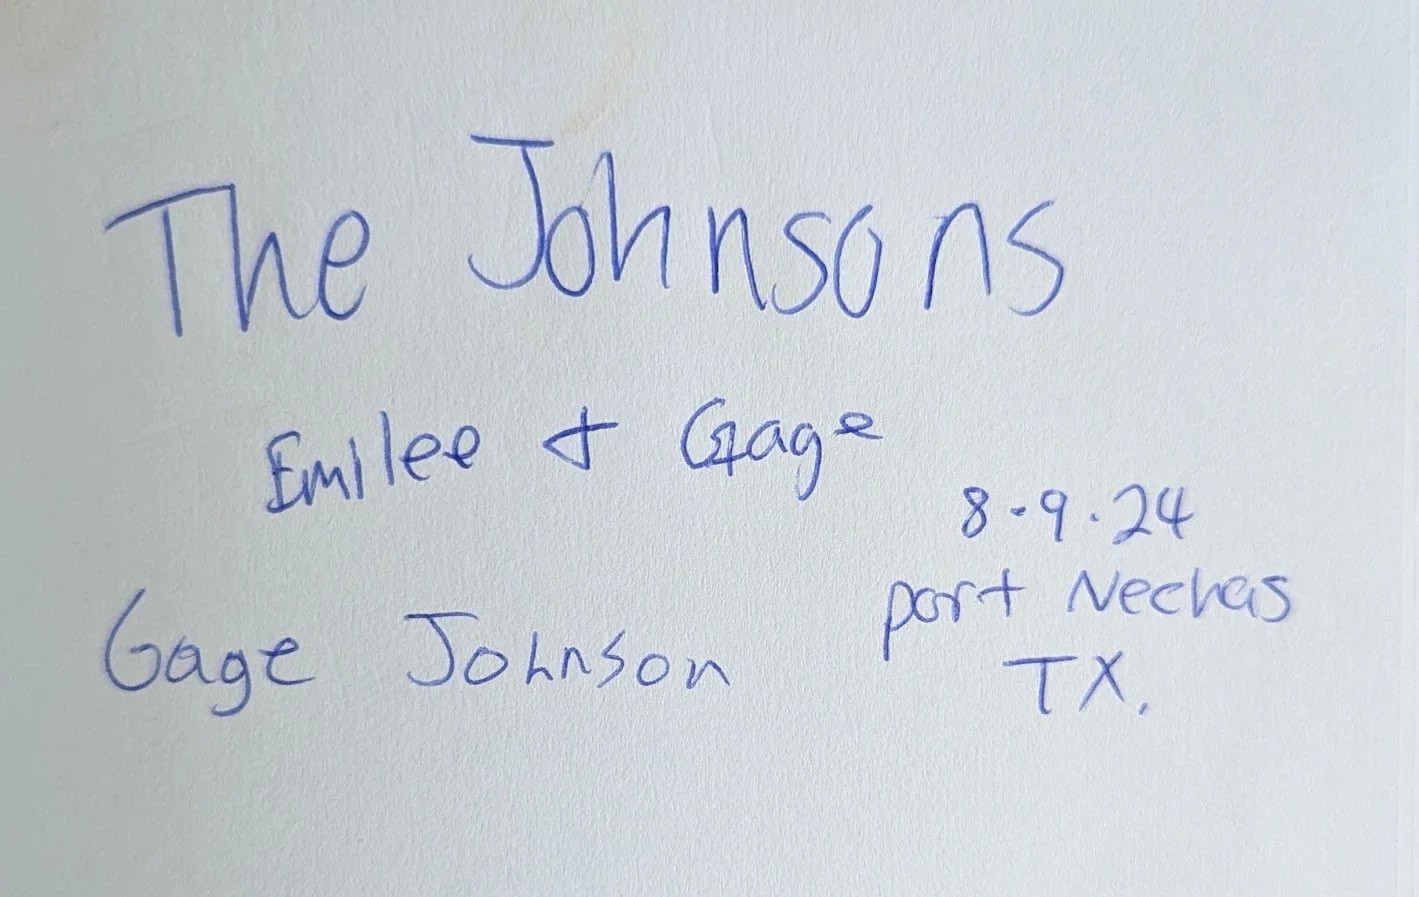 The Johnsons
Emilee + Gage
8-9.24
Gage Johnson
port Neches
TX.